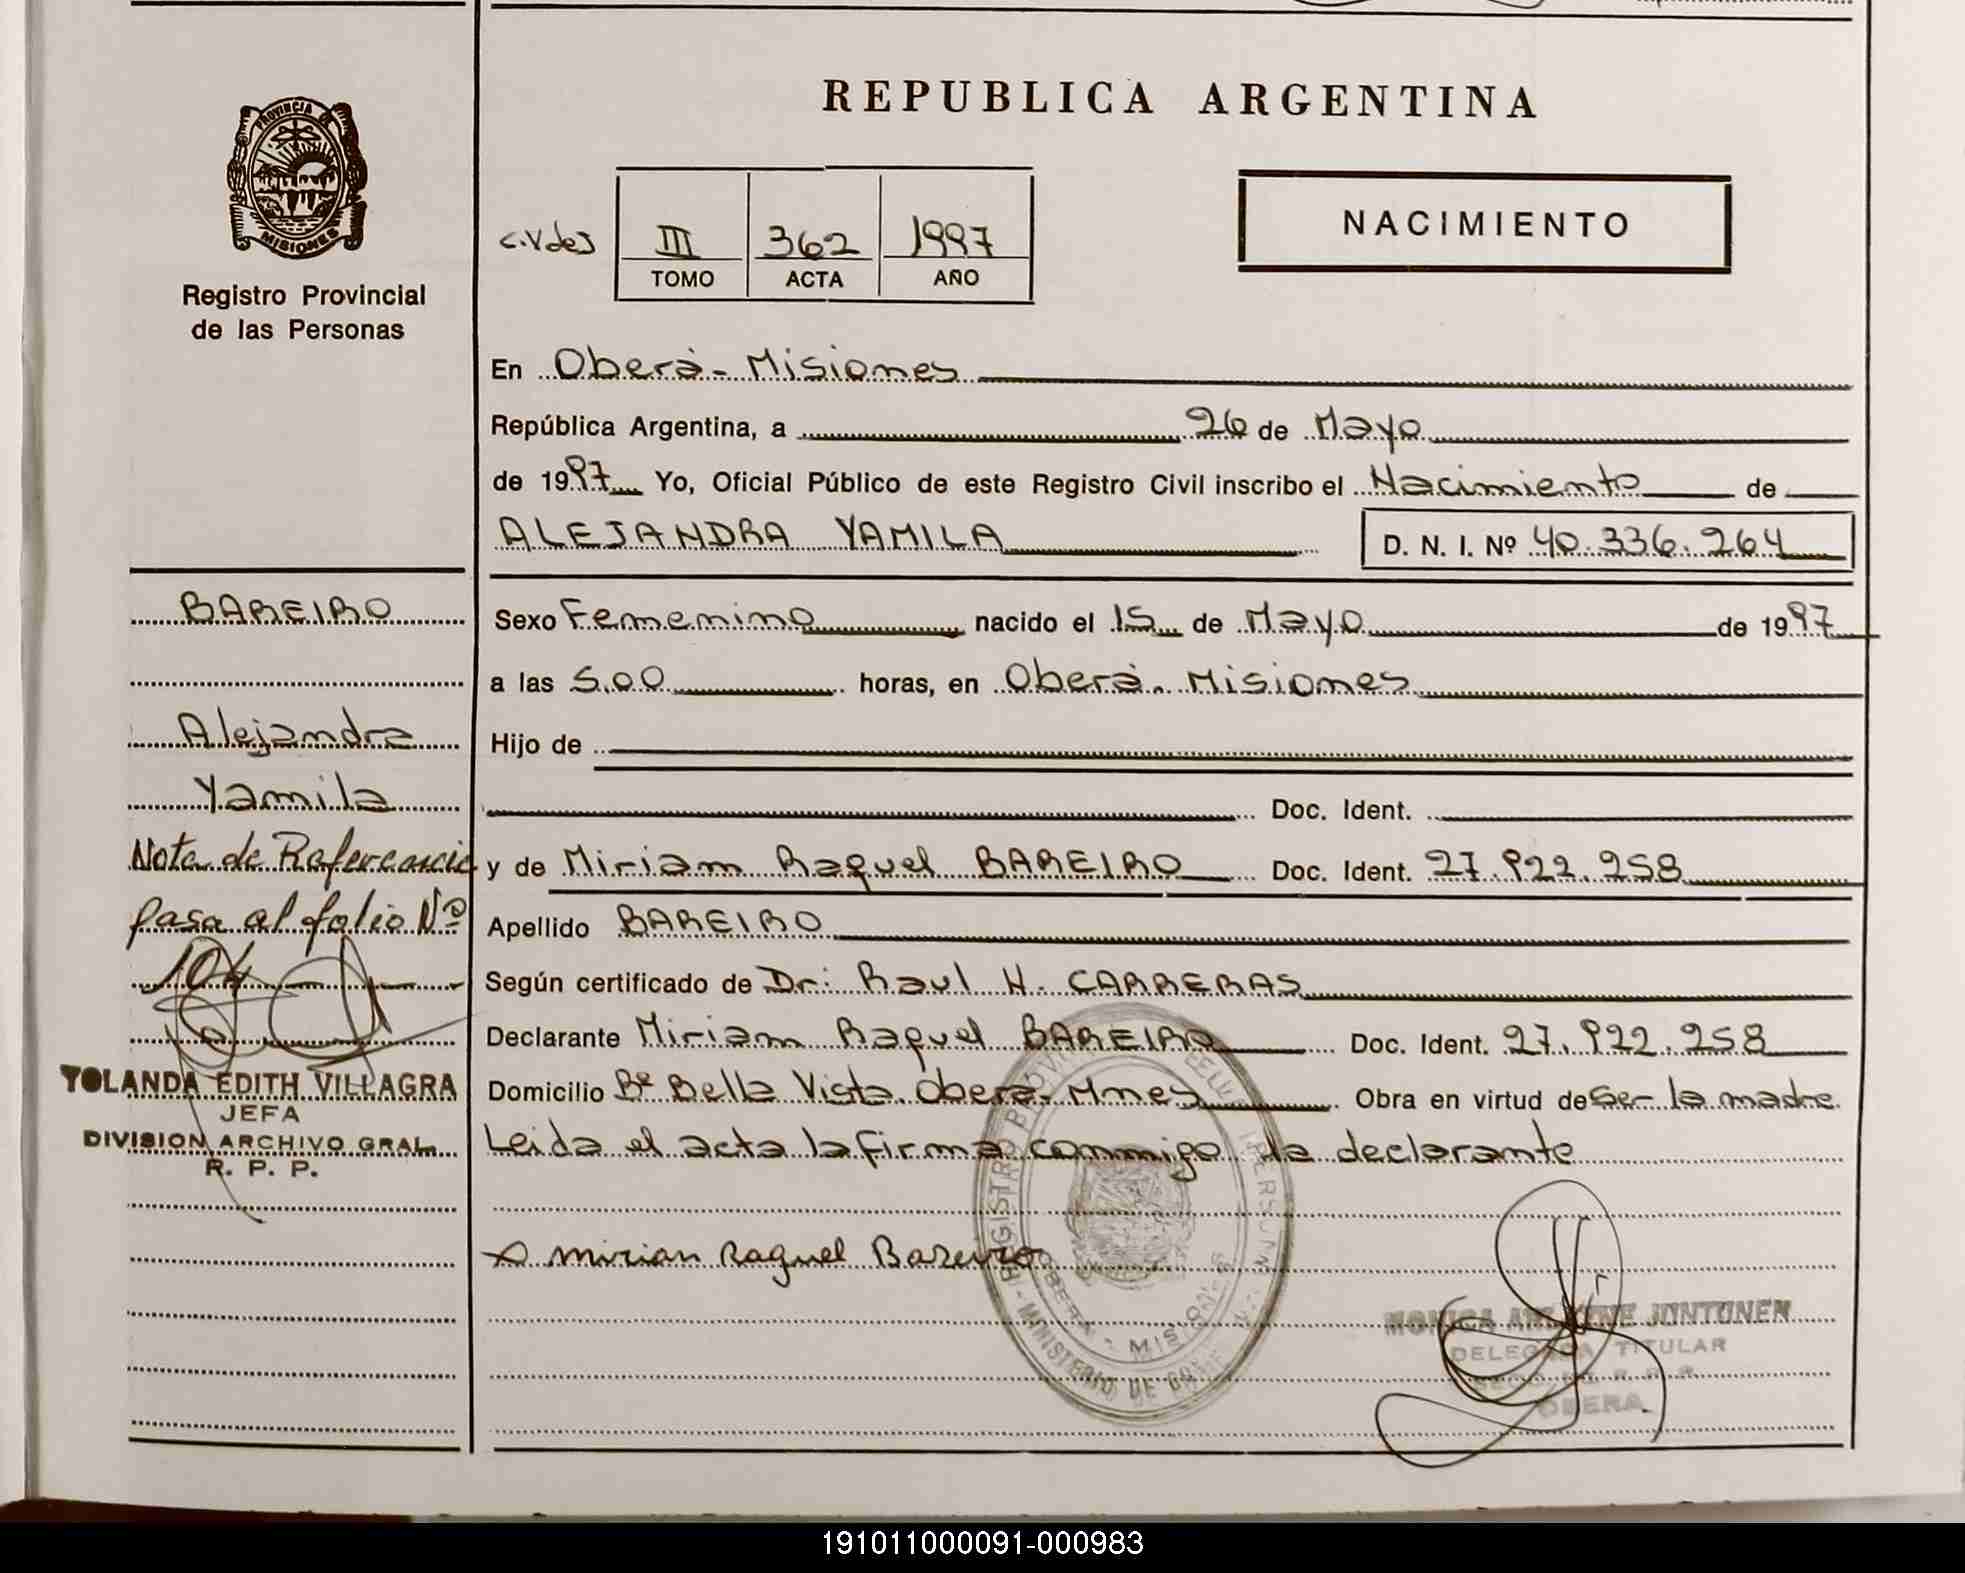 REPUBLICA ARGENTINA
PROVINCIA DE
MISIONES
Registro Provincial
de las Personas
C.Vdes III 362 1997
TOMO ACTA AÑO
NACIMIENTO
En Oberá - Misiones
República Argentina, a 26 de Mayo
de 1997 Yo, Oficial Público de este Registro Civil inscribo el Nacimiento de
ALEJANDRA YAMILA D. N. I. Nº 40.336.264
Sexo Femenino nacido el 15 de Mayo de 1997
a las 5.00 horas, en Oberá. Misiones
Hijo de
Doc. Ident.
y de Miriam Raquel BAREIRO Doc. Ident. 27.922.258
Apellido BAREIRO
Según certificado de Dr: Raul H. CARRERAS
Declarante Miriam Raquel BAREIRO Doc. Ident. 27.922.258
Domicilio Bº Bella Vista. Oberá- Mnes Obra en virtud de Ser la madre
Leida el acta la firma conmigo la declarante
Mirian Raquel Bareiro
MONICA JUNTUNEN
DELEGADA TITULAR
OBERA
REGISTRO PROVINCIAL
OBERA - MISIONES
MINISTERIO DE
BAREIRO
Alejandra
Yamila
Nota de Referencia
pasa al folio Nº
104
YOLANDA EDITH VILLAGRA
JEFA
DIVISION ARCHIVO GRAL.
R. P. P.
191011000091-000983